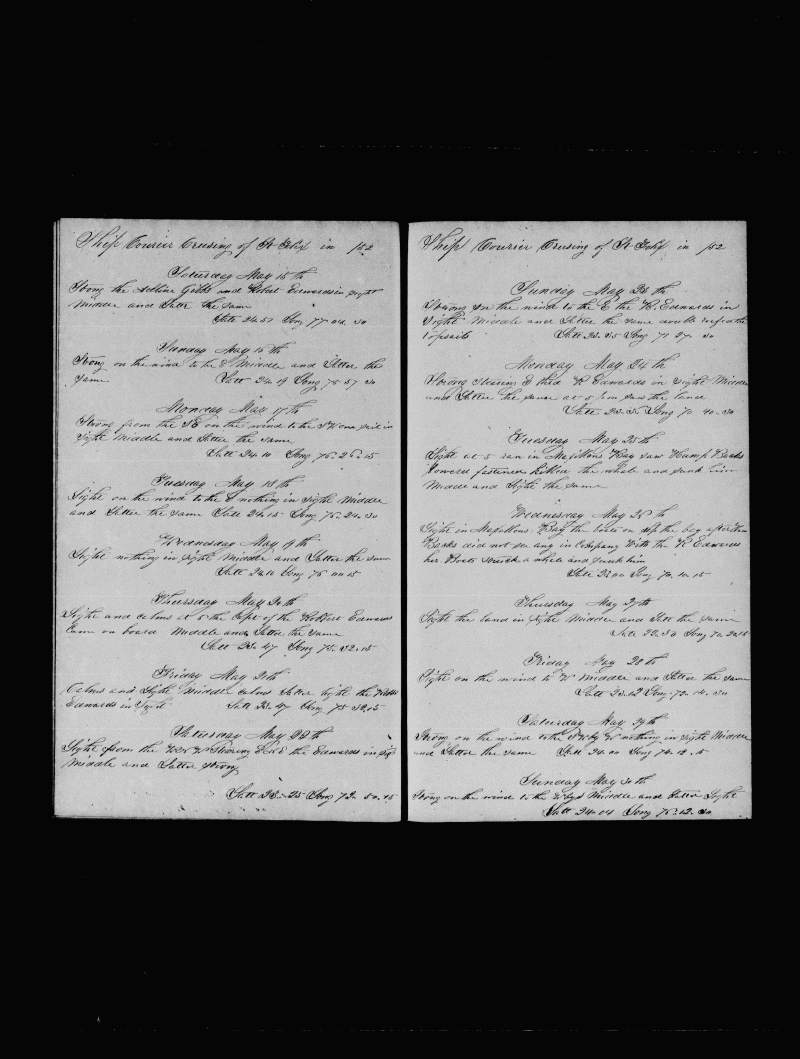 Ship Courier Crusing of St Felix in /52
Saturday May 15th
Strong the Adline Gibbs and Robert Edwards in sight
Middle and Latter the same
Latt 24.51 Long 77.04.30
Sunday May 16th
Strong on the wind to the E Middle and Latter the
same Latt 24.19 Long 75.57 30
Monday May 17th
Strong from the SE on the wind to the SW one sail in
sight Middle and Latter the same
Latt 24.10 Long 76.26.15
Tuesday May 18th
Light on the wind to the E nothing in sight Middle
and Latter the same Latt 24.15 Long 76.24.30
Wednesday May 19th
Light nothing in sight Middle and Latter the same
Latt Long 76 00 15
Thursday May 20th
Light and calms at 5 the Capt of the Robbert Edwards
Came on board Middle and Latter the same
Latt 23.47 Long 75.32.15
Friday May 21th
Calms and Light Middle calms Latter light the
Edwards in Sight Latt 23.47 Long 75 32.15
Saturday May 22th
Light from the W Stearing the Edwards in sight
Middle and Latter strong
Latt 23.25 Long 72.50.15
Ship Courier Crusing of St Felix in /52
Sunday May 23th
Strong on the wind to the E the R. Edwards in
sight Middle and Latter the same double reefed the
topsails Latt 23.35 Long 71 27.30
Monday May 24th
Strong stearing E the R Edwards in sight Middle
and Latter the same at 5 saw the land
Latt 23.35 Long 70 40.30
Tuesday May 25th
Light at 5 ran in Bay saw Hump Backs
Lowered fastened killed the whale and sunk him
Middle and Light the same
Wednesday May 26th
Light in Bay the boats on up the bay after Hump
Backs did not see any in Company With the R Edwards
her Boats struck a whale and sunk him
Latt 23 00 Long 70.10.15
Thursday May 27th
Light the land in sight Middle and Latt the same
Latt 22.50 Long 70.20.15
Friday May 28th
Light on the wind to W Middle and Latter the same
Latt 23.12 Long 72.14.30
Saturday May 29th
Strong on the wind to the W nothing in sight Middle
and Latter the same Latt 24.00 Long 74.12.15
Sunday May 30th
Strong on the wind to the Middle and Latter Light
Latt 24.04 Long 75.12.30